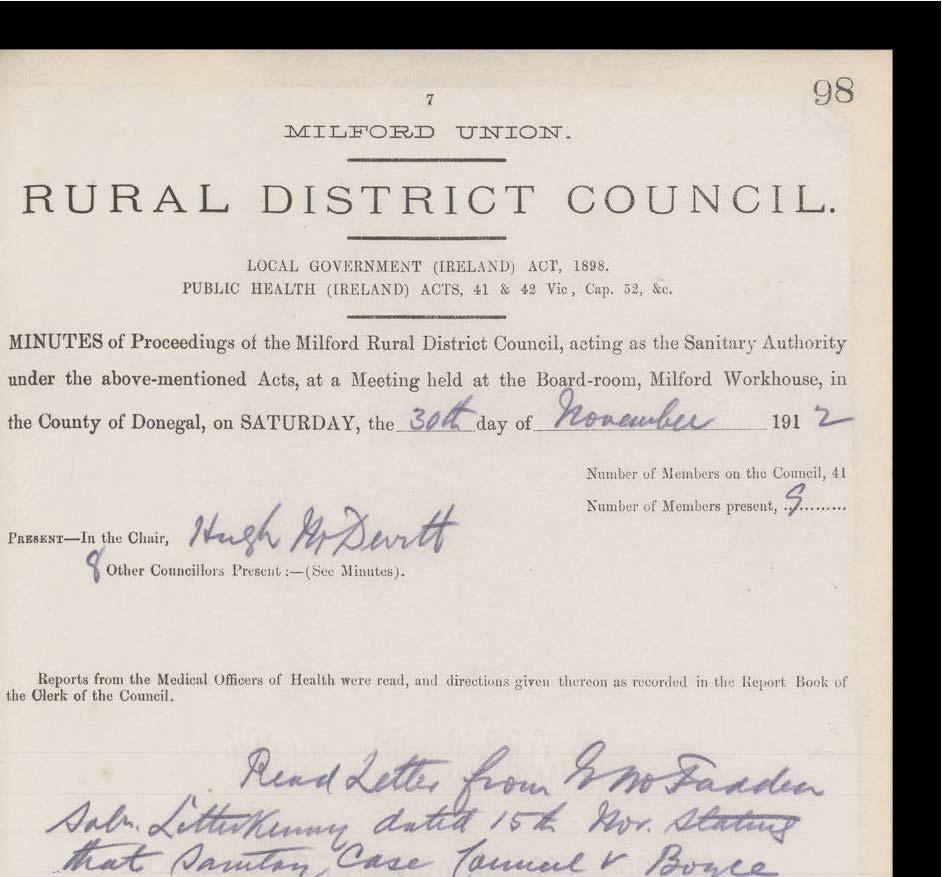 98
7
MILFORD UNION.
RURAL DISTRICT COUNCIL.
LOCAL GOVERNMENT (IRELAND) ACT, 1898.
PUBLIC HEALTH (IRELAND) ACTS, 41 & 42 Vic, Cap. 52, &c.
MINUTES of Proceedings of the Milford Rural District Council, acting as the Sanitary Authority
under the above-mentioned Acts, at a Meeting held at the Board-room, Milford Workhouse, in
the County of Donegal, on SATURDAY, the 30th day of November 1912
Number of Members on the Council, 41
Number of Members present, 9
PRESENT—In the Chair, Hugh McDevitt
8 Other Councillors Present :—(See Minutes).
Reports from the Medical Officers of Health were read, and directions given thereon as recorded in the Report Book of
the Clerk of the Council.
Read Letter from McFadden
Solr. Letterkenny dated 15th Nov. stating
that Sanitary Case Council v Boyce